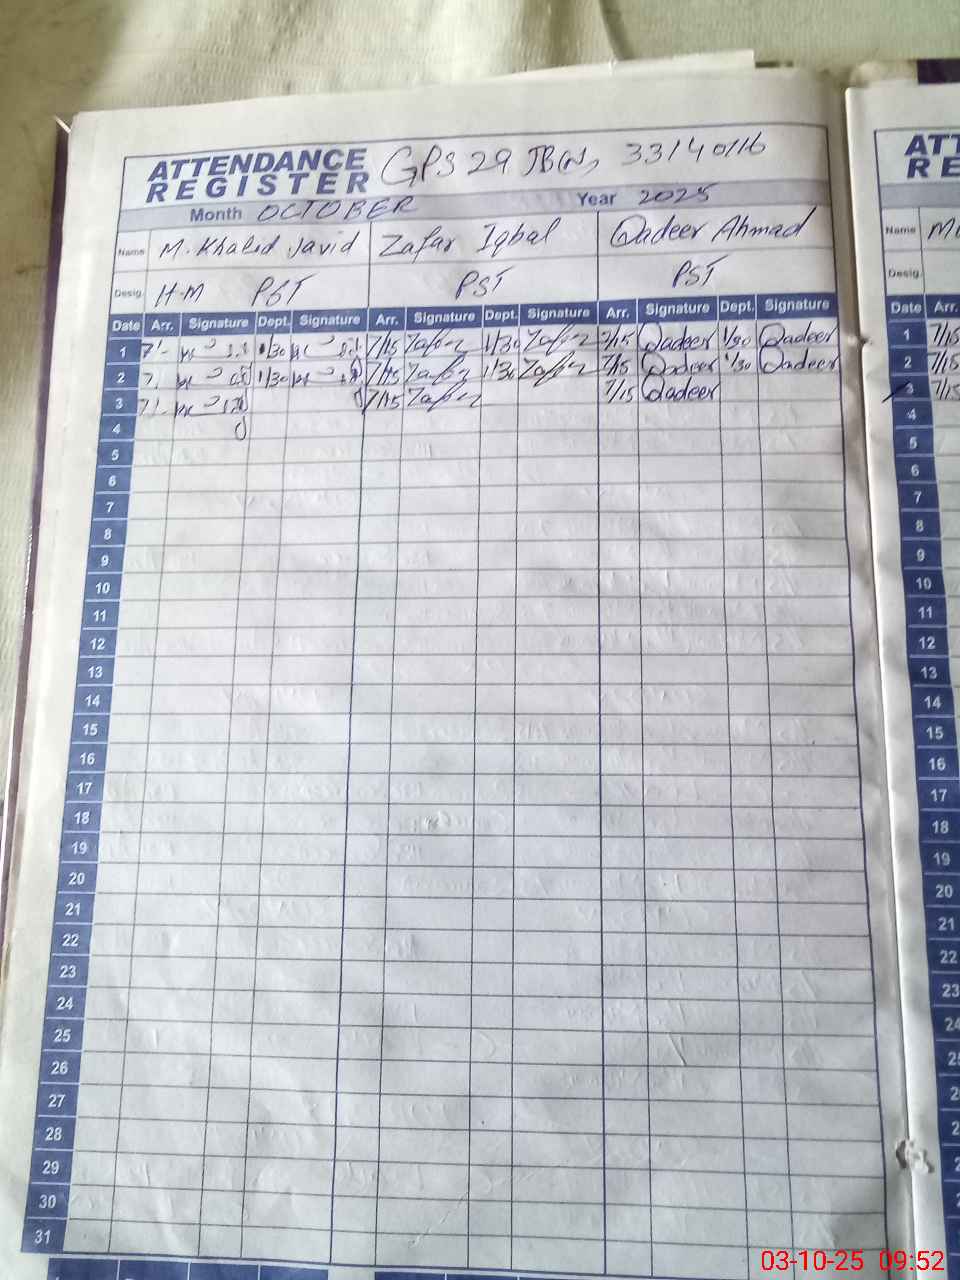 ATTENDANCE REGISTER GPS 29 JB(N), 33140116
Month OCTOBER Year 2025
Name M. Khalid Javid Zafar Iqbal Qadeer Ahmad
Desig. H-M PST PST PST
Date Arr. Signature Dept. Signature Arr. Signature Dept. Signature Arr. Signature Dept. Signature
1 7/- 1/30 7/15 Zafar 1/30 Zafar 7/15 Qadeer 1/30 Qadeer
2 7/- 1/30 7/15 Zafar 1/30 Zafar 7/15 Qadeer 1/30 Qadeer
3 7/- 7/15 Zafar 7/15 Qadeer
4
5
6
7
8
9
10
11
12
13
14
15
16
17
18
19
20
21
22
23
24
25
26
27
28
29
30
31
Name
Desig.
Date Arr.
1 7/15
2 7/15
3 7/15
4
5
6
7
8
9
10
11
12
13
14
15
16
17
18
19
20
21
22
23
03-10-25 09:52